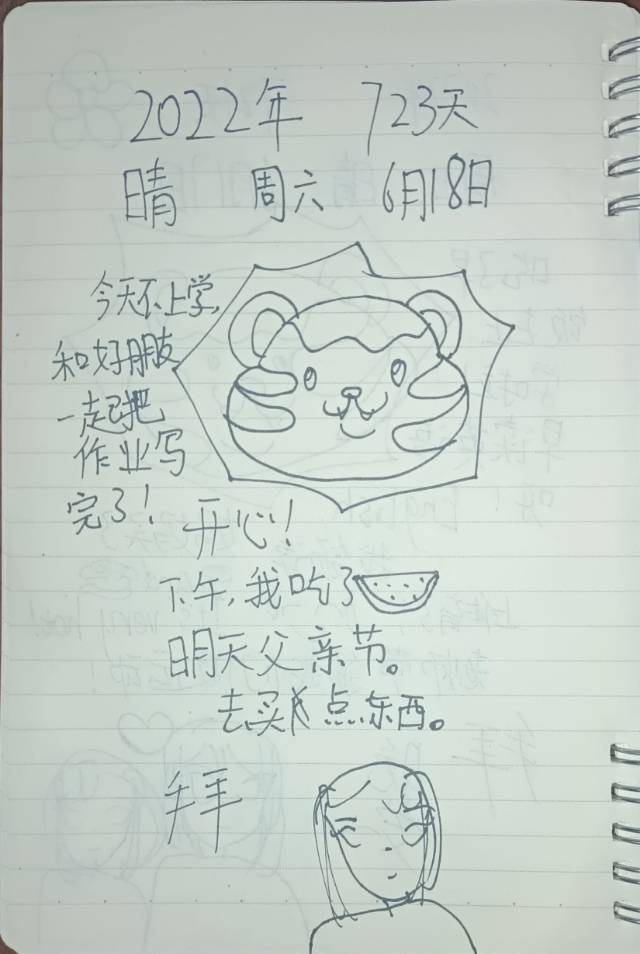 2022年 723天
晴 周六 6月18日
今天不上学,
和好朋友
一起把
作业写
完了!
开心!
下午,我吃了
明天父亲节。
去买点东西。
拜